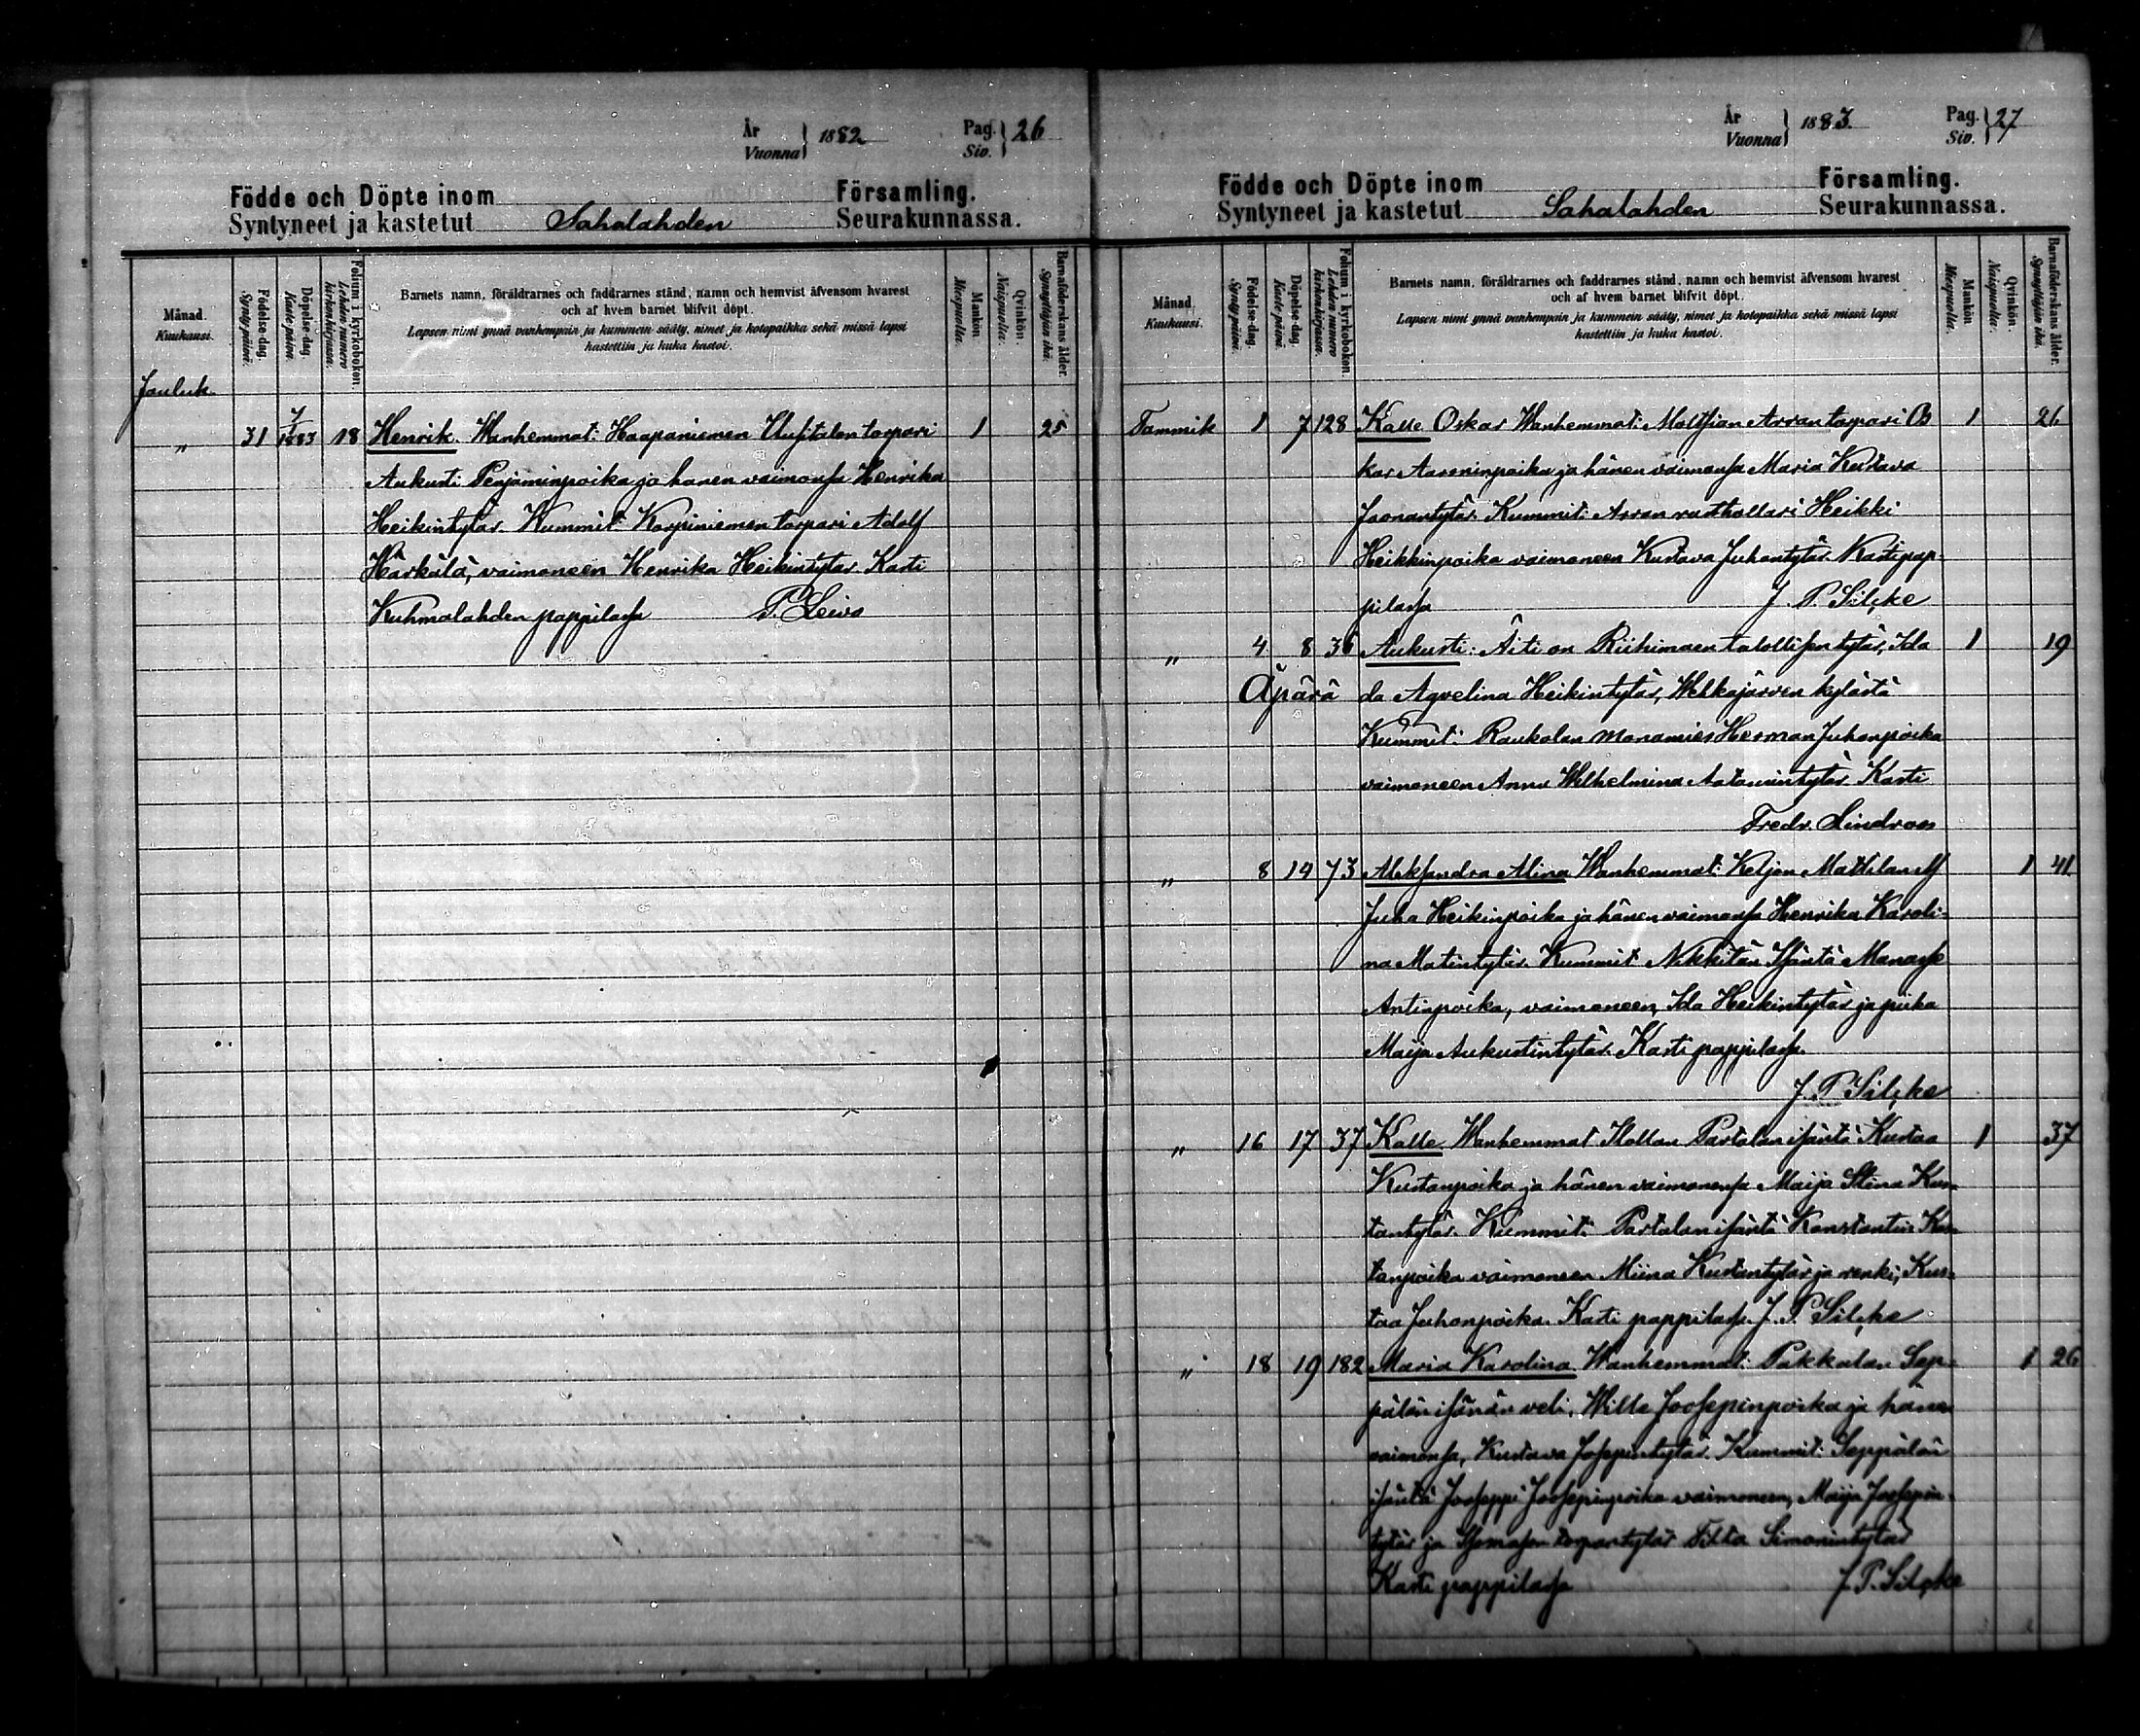 År
Vuonna } 1882 Pag.
Siv. } 26
Födde och Döpte inom Församling.
Syntyneet ja kastetut Sahalahden Seurakunnassa.
Månad.
Kuukausi.
Födelse-dag.
Synty-päivä.
Döpelse-dag.
Kaste-päivä.
Folium i kyrkobokon.
Lehden numero
kirkonkirjassa.
Barnets namn, föräldrarnes och faddrarnes stånd, namn och hemvist äfvensom hvarest
och af hvem barnet blifvit döpt.
Lapsen nimi ynnä vanhempain ja kummein sääty, nimet ja kotopaikka sekä missä lapsi
kastettiin ja kuka kastoi.
Mankön.
Miespuolta.
Qvinkön.
Naispuolta.
Barnaföderskans ålder.
Synnyttäjän ikä.
Jouluk.
„ 31 7/1883 18 Henrik. Wanhemmat: Haapaniemen Uusitalon torpari 1 25
Aukusti Penjaminpoika ja hänen vaimonsa Henrika
Heikintytär. Kummit: Korpiniemen torpari Adolf
Härkälä, vaimoneen Henrika Heikintytär. Kasti
Kuhmalahden pappilassa P. Leivo
År
Vuonna } 1883. Pag.
Siv. } 27
Födde och Döpte inom Församling.
Syntyneet ja kastetut Sahalahden Seurakunnassa.
Månad.
Kuukausi.
Födelse-dag.
Synty-päivä.
Döpelse-dag.
Kaste-päivä.
Folium i kyrkobokon.
Lehden numero
kirkonkirjassa.
Barnets namn, föräldrarnes och faddrarnes stånd, namn och hemvist äfvensom hvarest
och af hvem barnet blifvit döpt.
Lapsen nimi ynnä vanhempain ja kummein sääty, nimet ja kotopaikka sekä missä lapsi
kastettiin ja kuka kastoi.
Mankön
Miespuolta.
Qvinkön.
Naispuolta.
Barnaföderskans ålder.
Synnyttäjän ikä.
Tammik 1 7 128 Kalle Oskar Wanhemmat: Moltsian Arran torpari Os 1 26
kar Aaroninpoika ja hänen vaimonsa Maria Kustava
Joonantytär. Kummit: Arran rusthollari Heikki
Heikkinpoika vaimoneen Kustava Juhantytär. Kasti pap-
pilassa J. P. Silçke
„ 4 8 36 Aukusti: Äiti on Riihimäen talollisen tytär, Ida 1 19
Äpärä da Agvelina Heikintytär, Wehkajärven kylästä
Kummit: Raukolan Herman Juhanpoika
vaimoneen Anna Wilhelmina Antonintytär. Kasti
Fredr. Lindroos
„ 8 14 73 Aleksandra Alina Wanhemmat: Keljon Mattilan
Juha Heikinpoika ja hänen vaimonsa Henrika Karoli- 1 41
na Matintytär. Kummit Nikkilän Isäntä Manasse
Antinpoika, vaimoneen, Ida Heikintytär ja piika
Maija Aukustintytär. Kasti pappilassa.
J. P. Silçke
„ 16 17 37 Kalle Wanhemmat Partolan isäntä Kustaa 1 37
Kustanpoika ja hänen vaimonensa Maija Stina Kus-
tantytär. Kummit: Partolan isäntä Konstantin Kus-
tanpoika vaimoneen Miina Kustantytär ja renki, Kus-
taa Juhanpoika. Kasti pappilassa. J. P. Silçke
„ 18 19 182 Maria Karolina. Wanhemmat: Pakkalan Sep- 1 26
pälän isännän veli, Wille Joosepinpoika ja hänen
vaimonsa, Kustava Josepintytär. Kummit: Seppälän
isäntä Jooseppi Joosepinpoika vaimoneen, Maija Joosepin-
tytär ja torpantytär Simonintytär
Kasti pappilassa J. P. Silçke